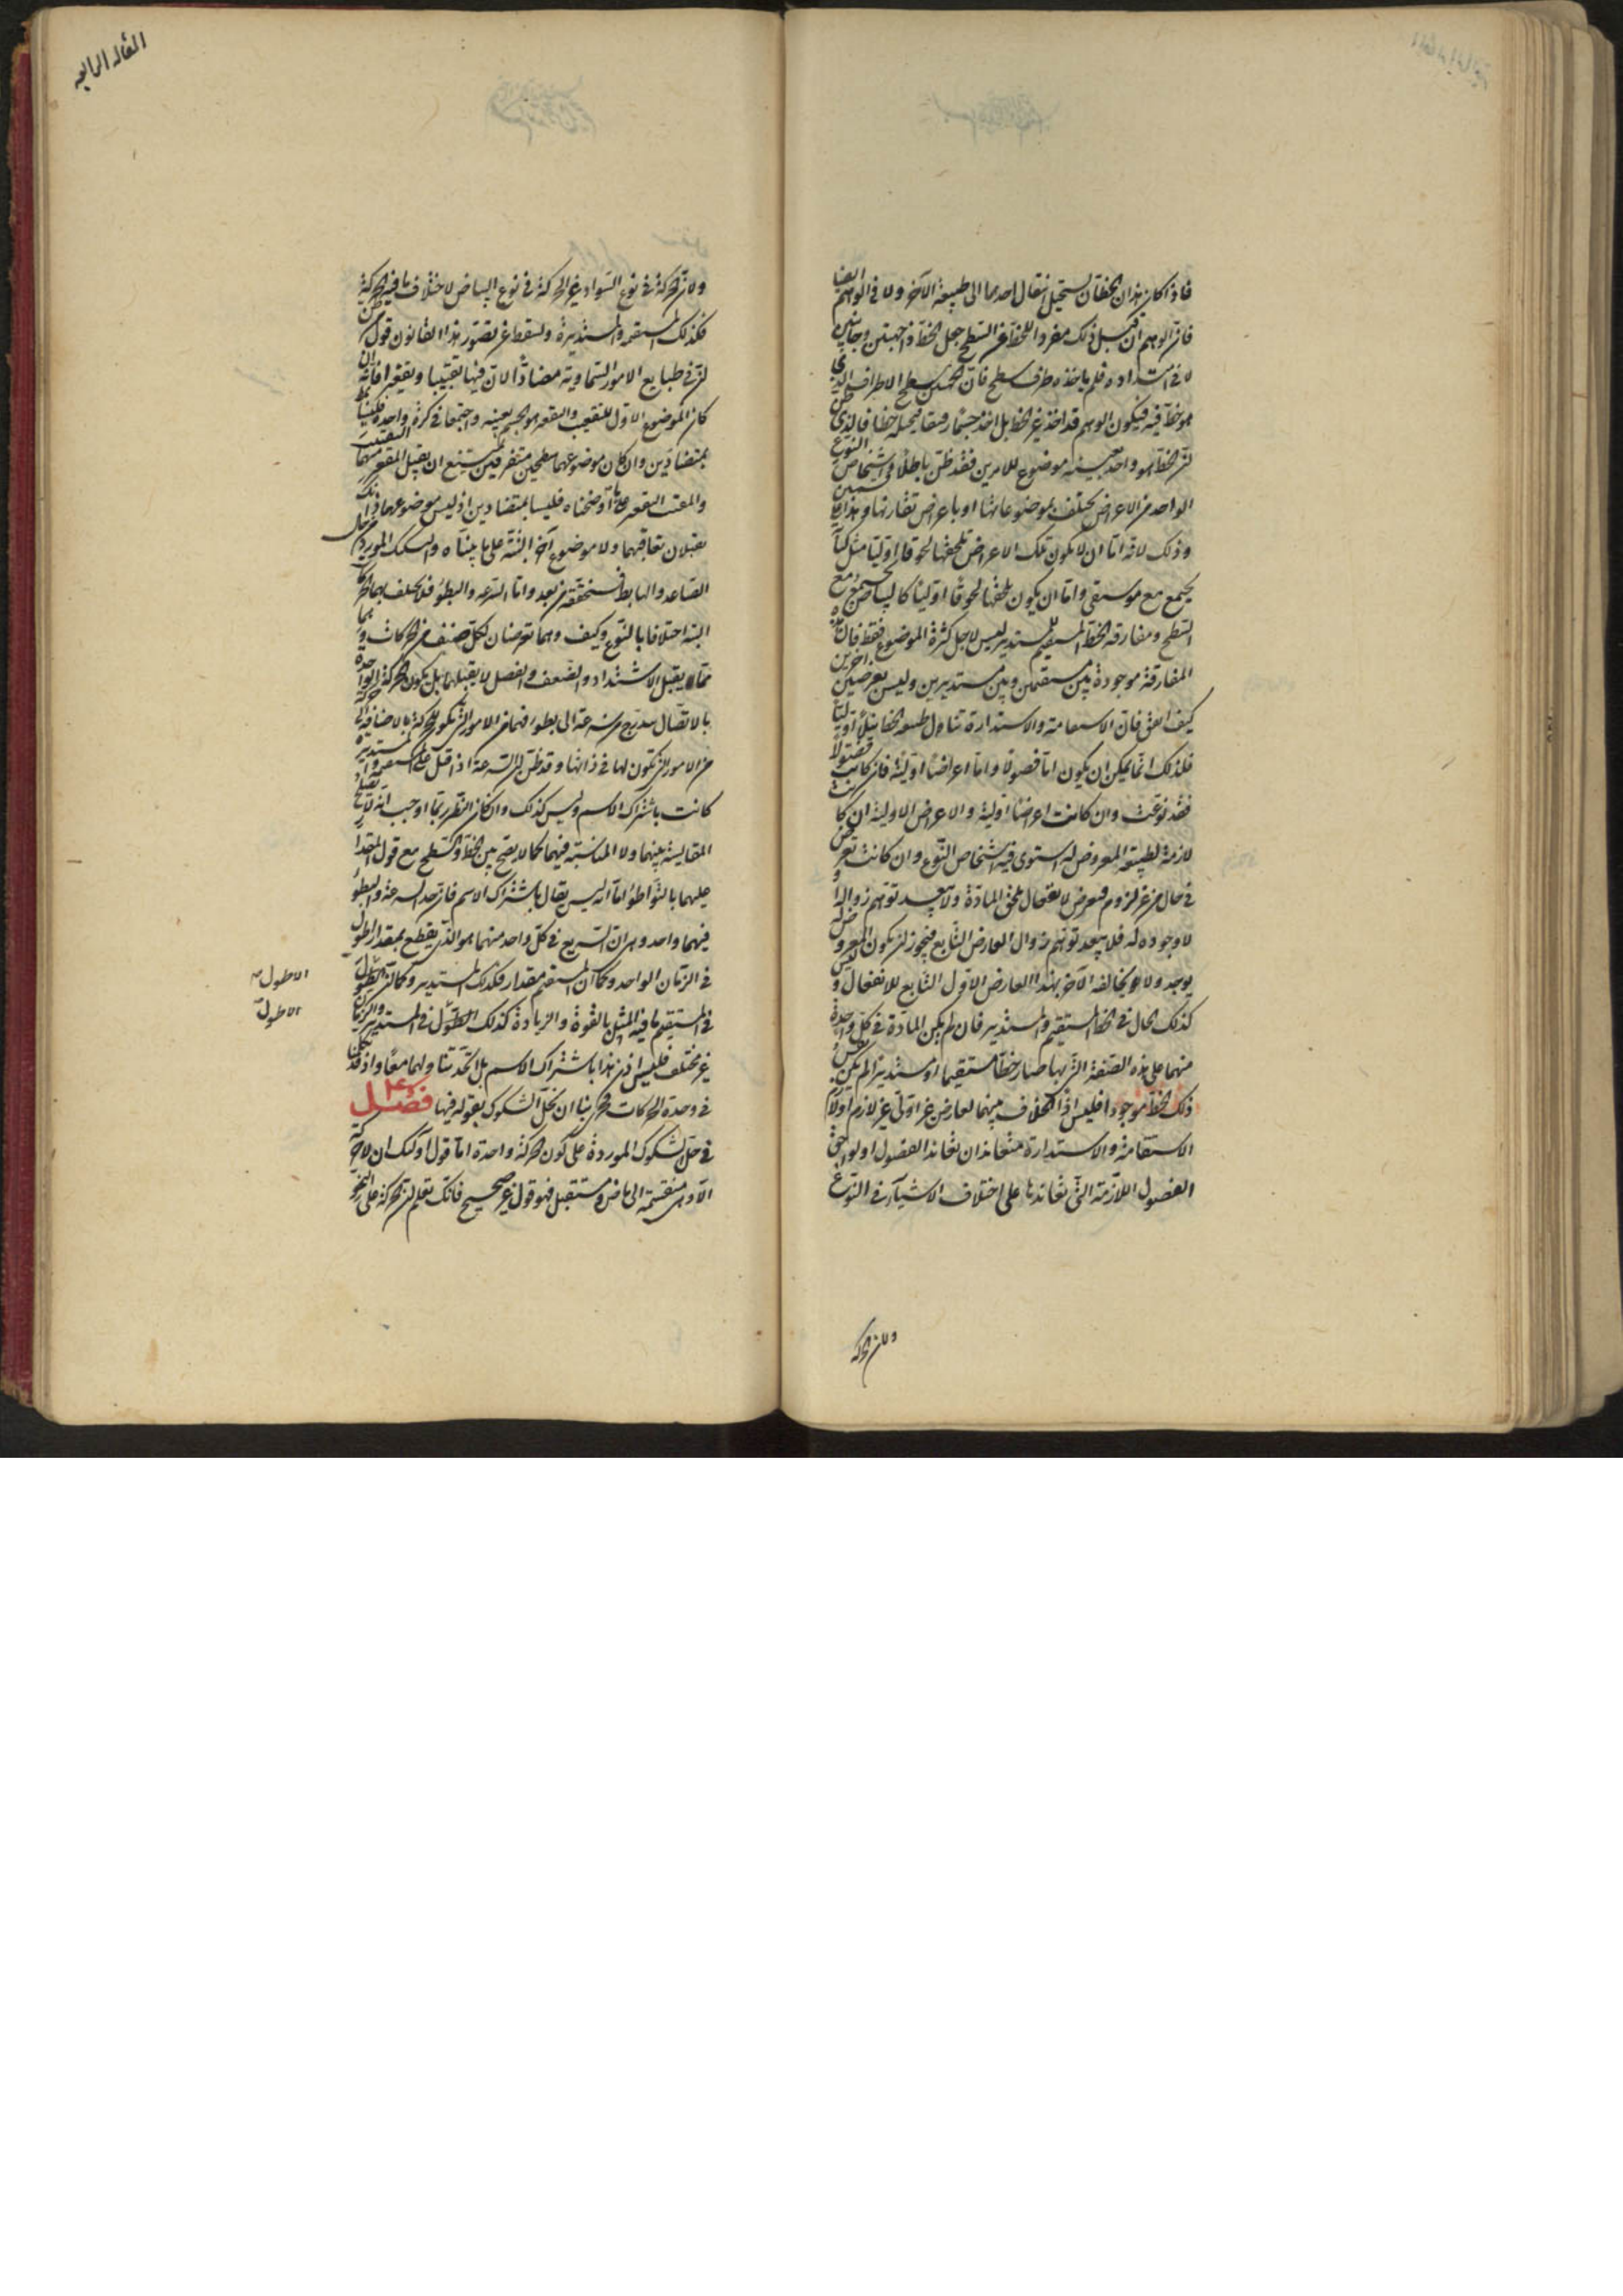 فاذا كان هذان الخطان يستحيل انتقال احدهما الى طبيعة الآخر ولا في الوهم ايضا
فان الوهم ان قبل ذلك مفردا للخط عن السطح جعل الخط ذا جهتين وجانبين
لا في امتداده فلم ياخذه طرف سطح فان المحدد سطح الاطراف الذي
هو خط فيه فيكون الوهم قد اخذ غير الخط بل اخذ جسما دقيقا تخيله خطا فالذي ظن
ان الخط هو واحد بعينه موضوع للامرين فقد ظن باطلا واشخاص النوع
الواحد من الاعراض يختلف بموضوعاتها او باعراض تقارنها وهذا
وذلك لانه اما ان لا يكون تلك الاعراض تلحقها لحوقا اوليا مثل كتابة
يجتمع مع موسيقى واما ان يكون تلحقها لحوقا اوليا كالبياض مع
السطح ومفارقة الخط المستقيم للمستدير ليس لاجل كثرة الموضوع فقط فان هذه
المفارقة موجودة بين مستقيمين وبين مستديرين وليس بعرضين آخرين
كيف اتفق فان الاستقامة والاستدارة تناول طبيعة الخط تناولا اوليا
فلذلك انما يمكن ان يكون اما فصولا واما اعراضا اولية فان كانت فصولا
فقد نوعت وان كانت اعراضا اولية والاعراض الاولية ان كانت
لازمة لطبيعة المعروض له استوى فيه اشخاص النوع وان كانت تعرض
في حال من غير لزوم فيعرض لانفعال يلحق المادة ولا يبعد توهم زوالها و
لا وجوده له فلا يبعد توهم زوال العارض التابع فيجوز ان يكون المعروض له
يوجد ولا يخالفه الآخر بهذا العارض الاول التابع للانفعال وليس
كذلك الحال في الخط المستقيم والمستدير فان لم يكن المادة في كل واحدة
منهما على هذه الصفة التي بها صار خطا مستقيما او مستديرا لم يكن
ذلك الخط موجودا فليس اذا الخلاف بينهما لعارض غير اولى غير لازم اولا
الاستقامة والاستدارة متعاندان تعاند الفصول او لواحق
الفصول اللازمة التي تعاندها على اختلاف الاشياء في النوع
ولان الحركة
المقاله الرابعه
ولان الحركة في نوع السواد غير الحركة في نوع البياض لاختلاف ما فيه الحركة
فكذلك المستقيمة والمستديرة وليقطع عن تصور هذا القانون قول من ظن
ان في طبايع الامور السماوية مضادا لان فيها تقبيبا وتقعيرا فانه ان
كان الموضوع الاول للتقبيب والتقعير هو الجسم بعينه واجتمعا في كرة واحدة فليسا
بمتضادين وان كان موضوعهما سطحين متفرقين يمتنع ان يقبل المقعر منهما التقبيب
والمقبب التقعير على ما اوضحناه فليسا بمتضادين اذ ليس موضوعهما ذانك
يقبلان تعاقبهما ولا موضوع آخر البتة على ما بيناه والشك المورد من حال
الصاعد والهابط فسنحققه من بعد واما السرعة والبطوء فلا يختلف بهما الحركات
البتة اختلافا بالنوع وكيف وهما تعرضان لكل صنف من الحركات وهما
مما يقبل الاشتداد والضعف والفصل لا يقبلهما بل يكون الحركة الواحدة
بالاتصال يتدرج من سرعة الى بطوء فهما من الامور التي تكون للحركة بالاضافة الى حركة
من الامور التي تكون لها في ذاتها وقد ظن ان السرعة اذا قيل على المستقيمة والمستديرة
كانت باشتراك الاسم وليس كذلك وان كان النظر ربما اوجب انه لا يصلح
المقايسة بينهما ولا المناسبة فيهما كما لا يصح بين الخط والسطح مع قول المقدار
عليهما بالتواطؤ اما انه ليس يقال باشتراك الاسم فان حد السرعة والبطوء
فيهما واحد وهو ان السريع في كل واحد منهما هو الذي يقطع بمقدارا طول
في الزمان الواحد وكما ان المستقيم مقدار فكذلك المستدير وكما ان الطول
في المستقيم ما فيه المثل بالقوة والزيادة كذلك الطول في المستدير والزمان
غير مختلف فليس اذن هذا باشتراك الاسم بل الحد يتناولهما معا واذ قد تكلمنا
في وحدة الحركات فحري بنا ان نحل الشكوك المقولة فيها فصل
في حل الشكوك الموردة على كون الحركة واحدة اما قول اولئك ان لا حركة
الا وهي منقسمة الى ماض ومستقبل فهو قول غير صحيح فانك تعلم ان الحركة على النحو
الاطول
الاطول